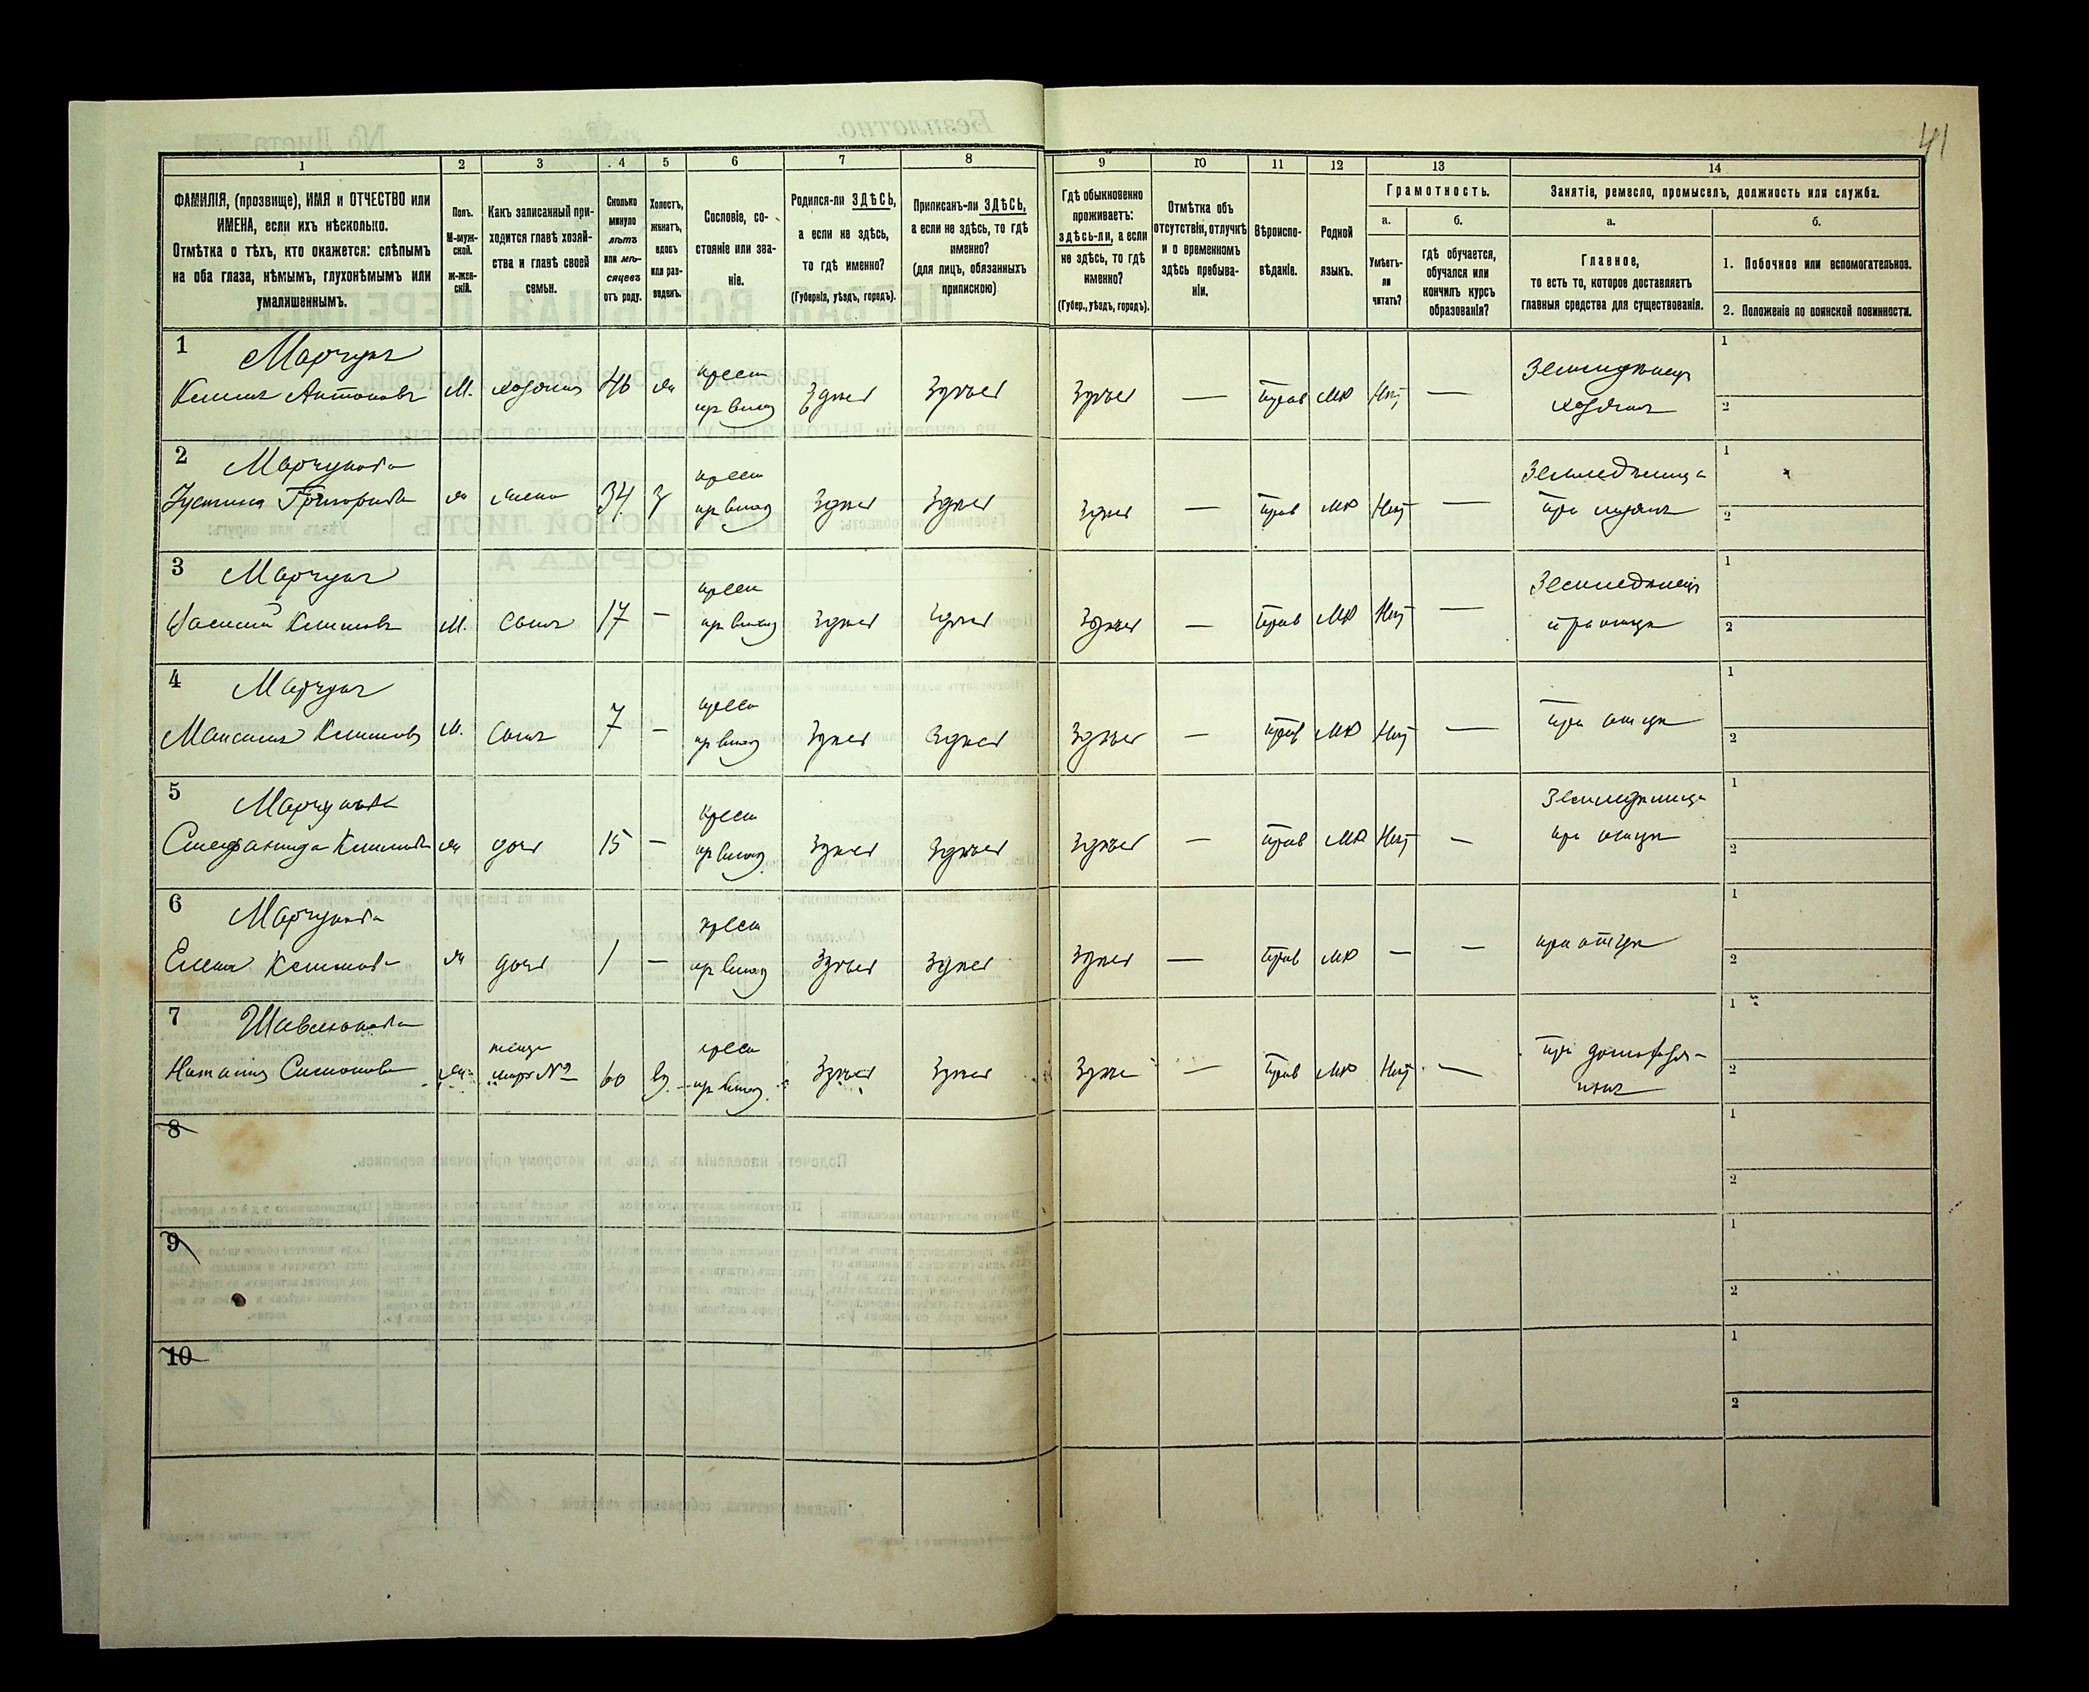 41
1 2 3 4 5 6 7 8 9 10 11 12 13 14
ФАМИЛІЯ, (прозвище), ИМЯ и ОТЧЕСТВО или
ИМЕНА, если ихъ нѣсколько.
Отмѣтка о тѣхъ, кто окажется: слѣпымъ
на оба глаза, нѣмымъ, глухонѣмымъ или
умалишеннымъ.
Полъ.
М-муж-
ской.
Ж-жен-
скій.
Какъ записанный при-
ходится главѣ хозяй-
ства и главѣ своей
семьи.
Сколько
минуло
лѣтъ
или мѣ-
сяцевъ
отъ роду.
Холостъ,
женатъ,
вдовъ
или раз-
веденъ.
Сословіе, со-
стояніе или зва-
ніе.
Родился-ли ЗДѢСЬ,
а если не здѣсь,
то гдѣ именно?
(Губернія, уѣздъ, городъ).
Приписанъ-ли ЗДѢСЬ,
а если не здѣсь, то гдѣ
именно?
(для лицъ, обязанныхъ
припискою)
Гдѣ обыкновенно
проживаетъ:
здѣсь-ли, а если
не здѣсь, то гдѣ
именно?
(Губер., уѣздъ, городъ).
Отмѣтка объ
отсутствіи, отлучкѣ
и о временномъ
здѣсь пребыва-
ніи.
Вѣроиспо-
вѣданіе.
Родной
языкъ.
Грамотность.
а.
Умѣетъ-
ли
читать?
б.
гдѣ обучается,
обучался или
кончилъ курсъ
образованія?
Занятіе, ремесло, промыселъ, должность или служба.
а.
Главное,
то есть то, которое доставляетъ
главныя средства для существованія.
б.
1. Побочное или вспомогательное.
2. Положеніе по воинской повинности.
1 Марчукъ
Климъ Антоновъ М. хозяинъ 46 ж крест Здѣсь Здѣсь Здѣсь — Прав МР Нѣт — Земледѣлецъ
хозяинъ
1
2
2 Марчукова
Устинія Григорьева ж жена 34 з крест Здѣсь Здѣсь Здѣсь — Прав МР Нѣт — Земледѣлица
при мужѣ
1
2
3 Марчукъ
Василій Климовъ М. сынъ 17 — крест Здѣсь Здѣсь Здѣсь — Прав МР Нѣт — Земледѣлецъ
при отцѣ
1
2
4 Марчукъ
Максимъ Климовъ М. сынъ 7 — крест Здѣсь Здѣсь Здѣсь — Прав МР Нѣт — при отцѣ
1
2
5 Марчукова
Стефанида Климова ж дочь 15 — крест Здѣсь Здѣсь Здѣсь — Прав МР Нѣт — Земледѣлица
при отцѣ
1
2
6 Марчукова
Елена Климова ж дочь 1 — крест Здѣсь Здѣсь Здѣсь — Прав МР — — при отцѣ
1
2
7
Наталія Симонова ж 60 вд. крест Здѣсь Здѣсь Здѣсь — Прав МР Нѣт — при
1
2
8
1
2
9
1
2
10
1
2